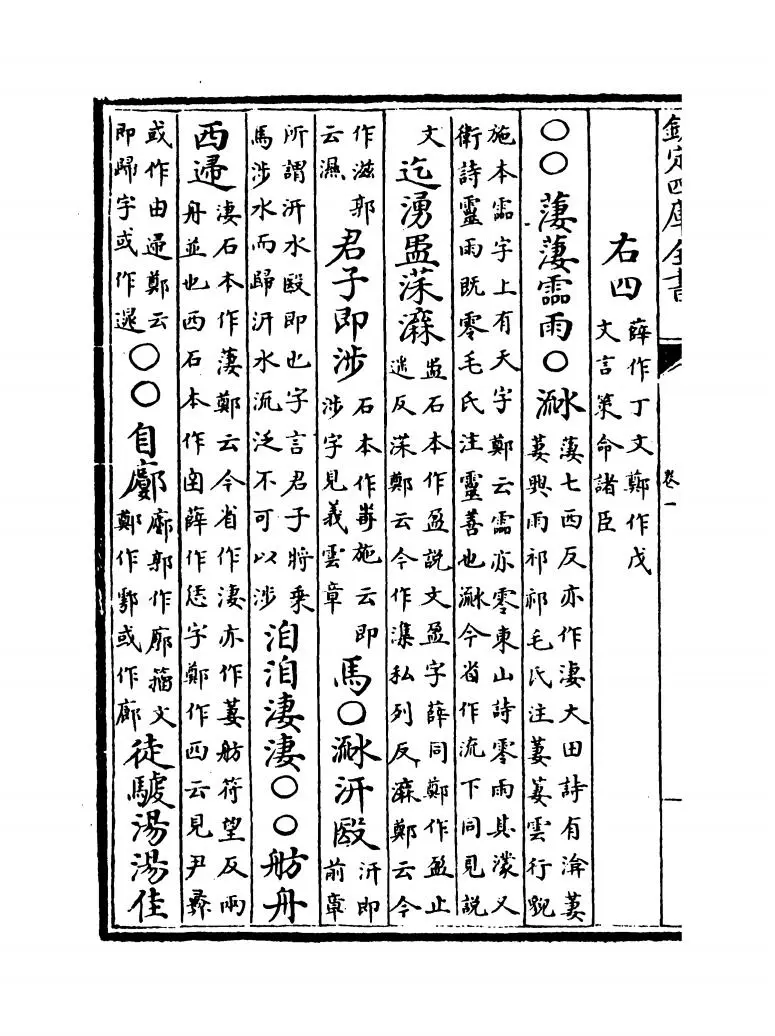 欽定四庫全書
卷一
右四薛作丁文鄭作戊文言策命諸臣
〇〇萋萋霝雨〇㵘萋七西反亦作淒大田詩有渰萋萋興雨祁祁毛氏注萋萋雲行貌
施本霝字上有天字鄭云霝亦零東山詩零雨其濛又衛詩靈雨既零毛氏注靈善也㵘今省作流下同見說
文迄湧盈渫㵗盈石本作盈説文盈字薛同鄭作盈止遥反渫鄭云今作渫私列反㵗鄭云今
作滋郭云濕君子即涉石本作施云即涉字見義雲章馬〇㵘汧殹汧即前章
所謂汧水殹即也字言君子將乗馬涉水而歸汧水流泛不可以涉洎洎淒淒〇〇舫舟
西逮淒石本作萋鄭云今省作淒亦作萋舫符望反兩舟並也西石本作卥薛作恁字鄭作西云見尹彞
或作由逮鄭云即歸字或作遝〇〇自廓廓郭作廓籀文鄭作鄠或作廊徒驉湯湯隹